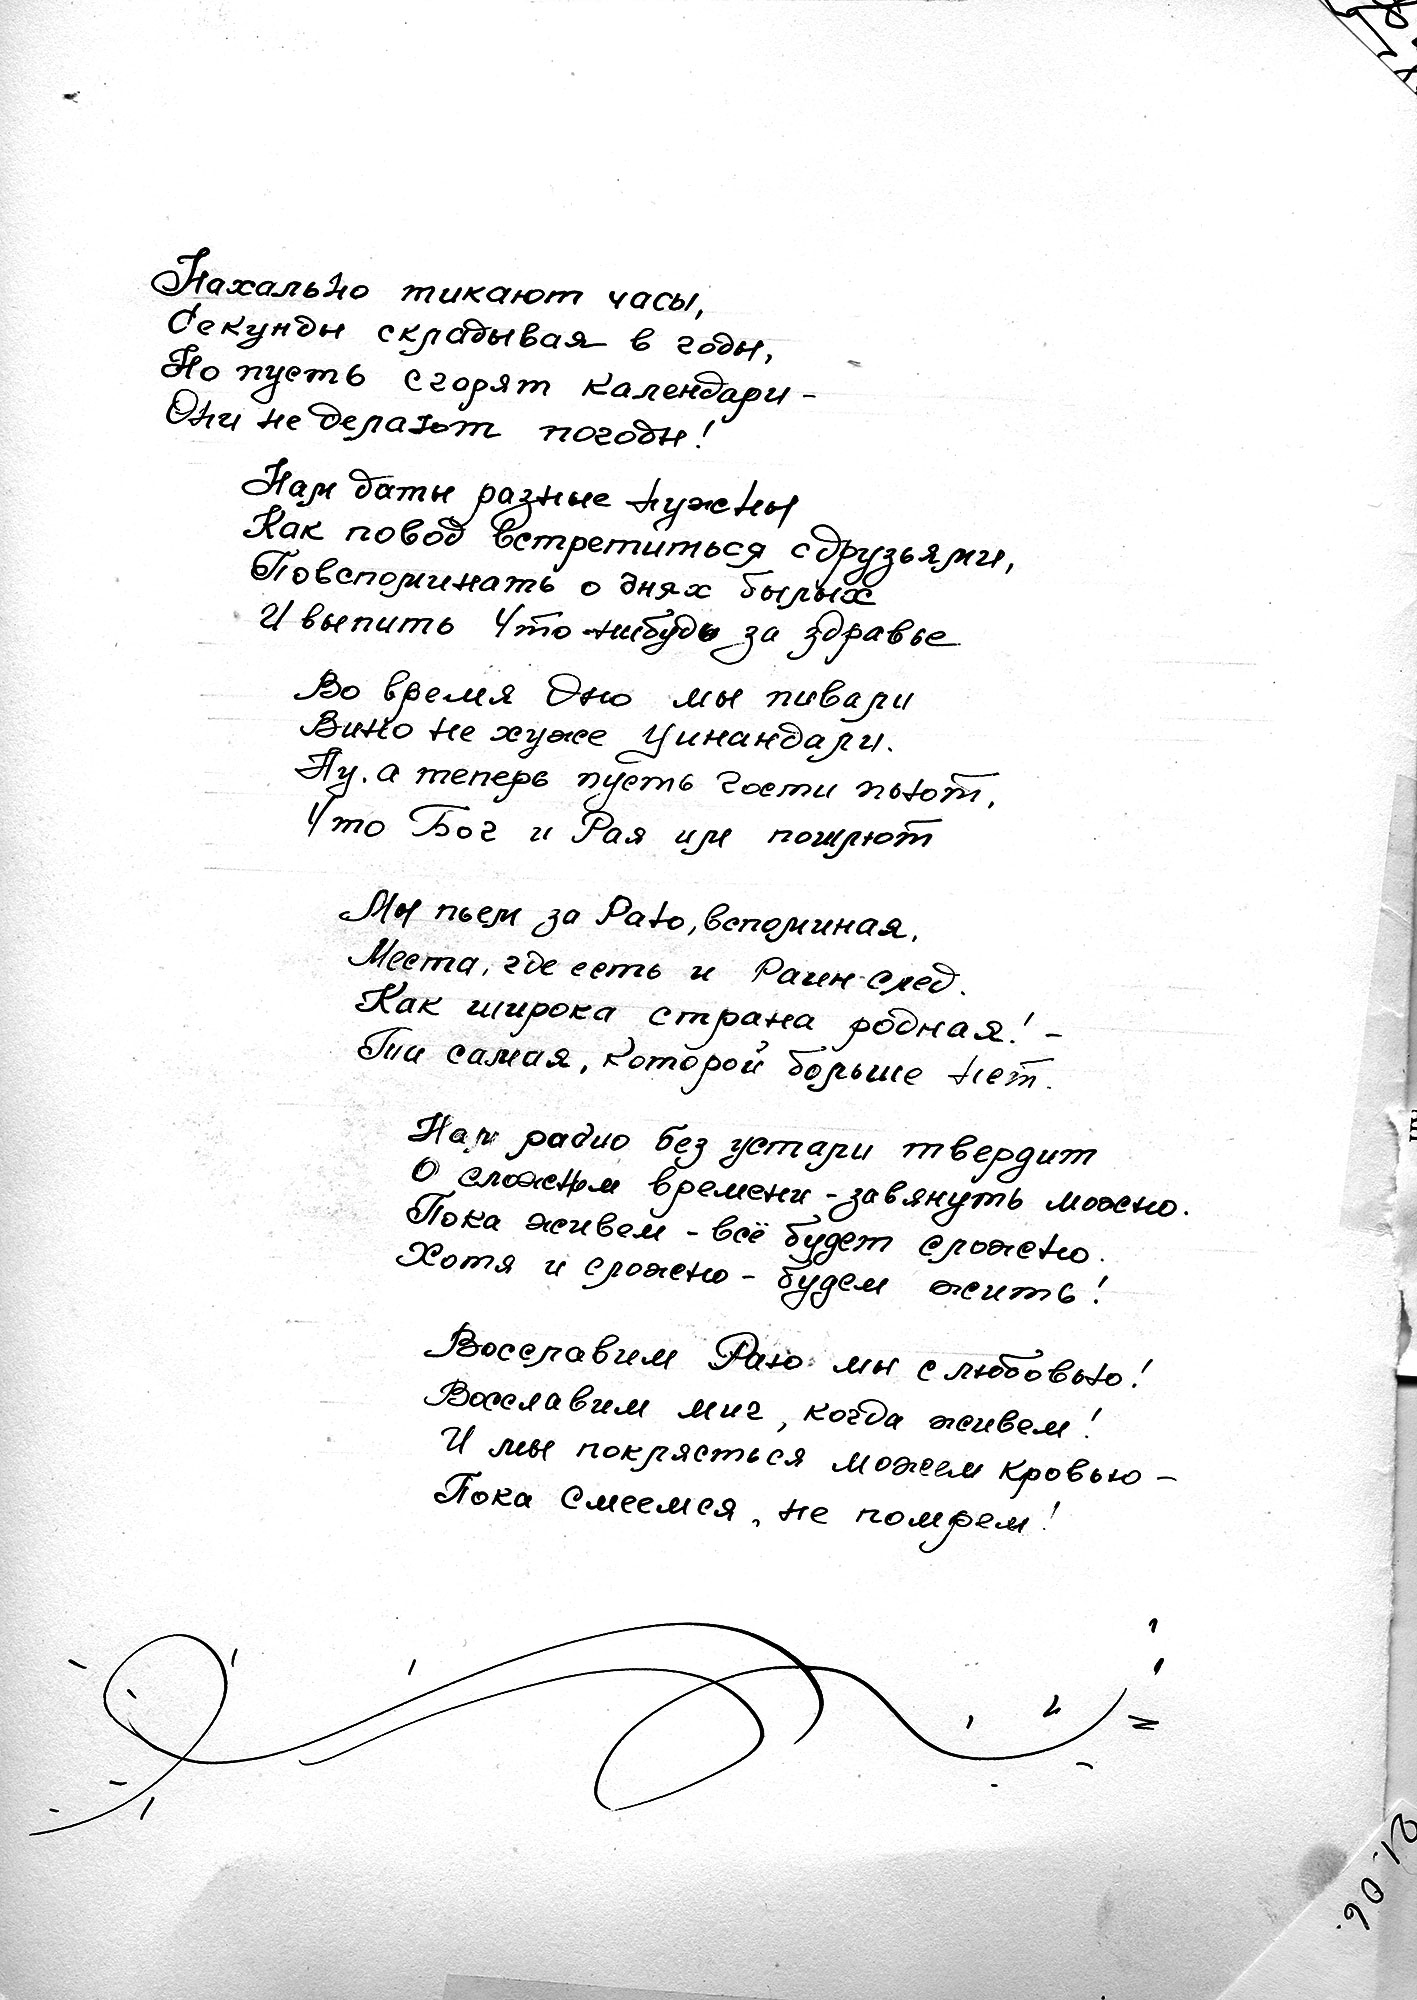 Нахально тикают часы,
Секунды складывая в годы,
Но пусть сгорят календари -
Они не делают погоды!
Нам даты разные нужны
Как повод встретиться с друзьями,
Повспоминать о днях былых
И выпить что-нибудь за здравье
Во время дно мы пивали
Вино не хуже Цинандали.
Ну, а теперь пусть гости пьют,
Что Бог и Рая им пошлют
Мы пьем за Раю, вспоминая,
Места, где есть и Раин след.
Как широка страна родная! -
Та самая, которой больше нет.
Нам радио без устали твердит
О сложном времени - завянуть можно.
Пока живем - всё будет сложно.
Хотя и сложно - будем жить!
Восславим Раю мы с любовью!
Восславим миг, когда живем!
И мы поклясться можем кровью -
Пока смеемся, не помрем!
21.06.